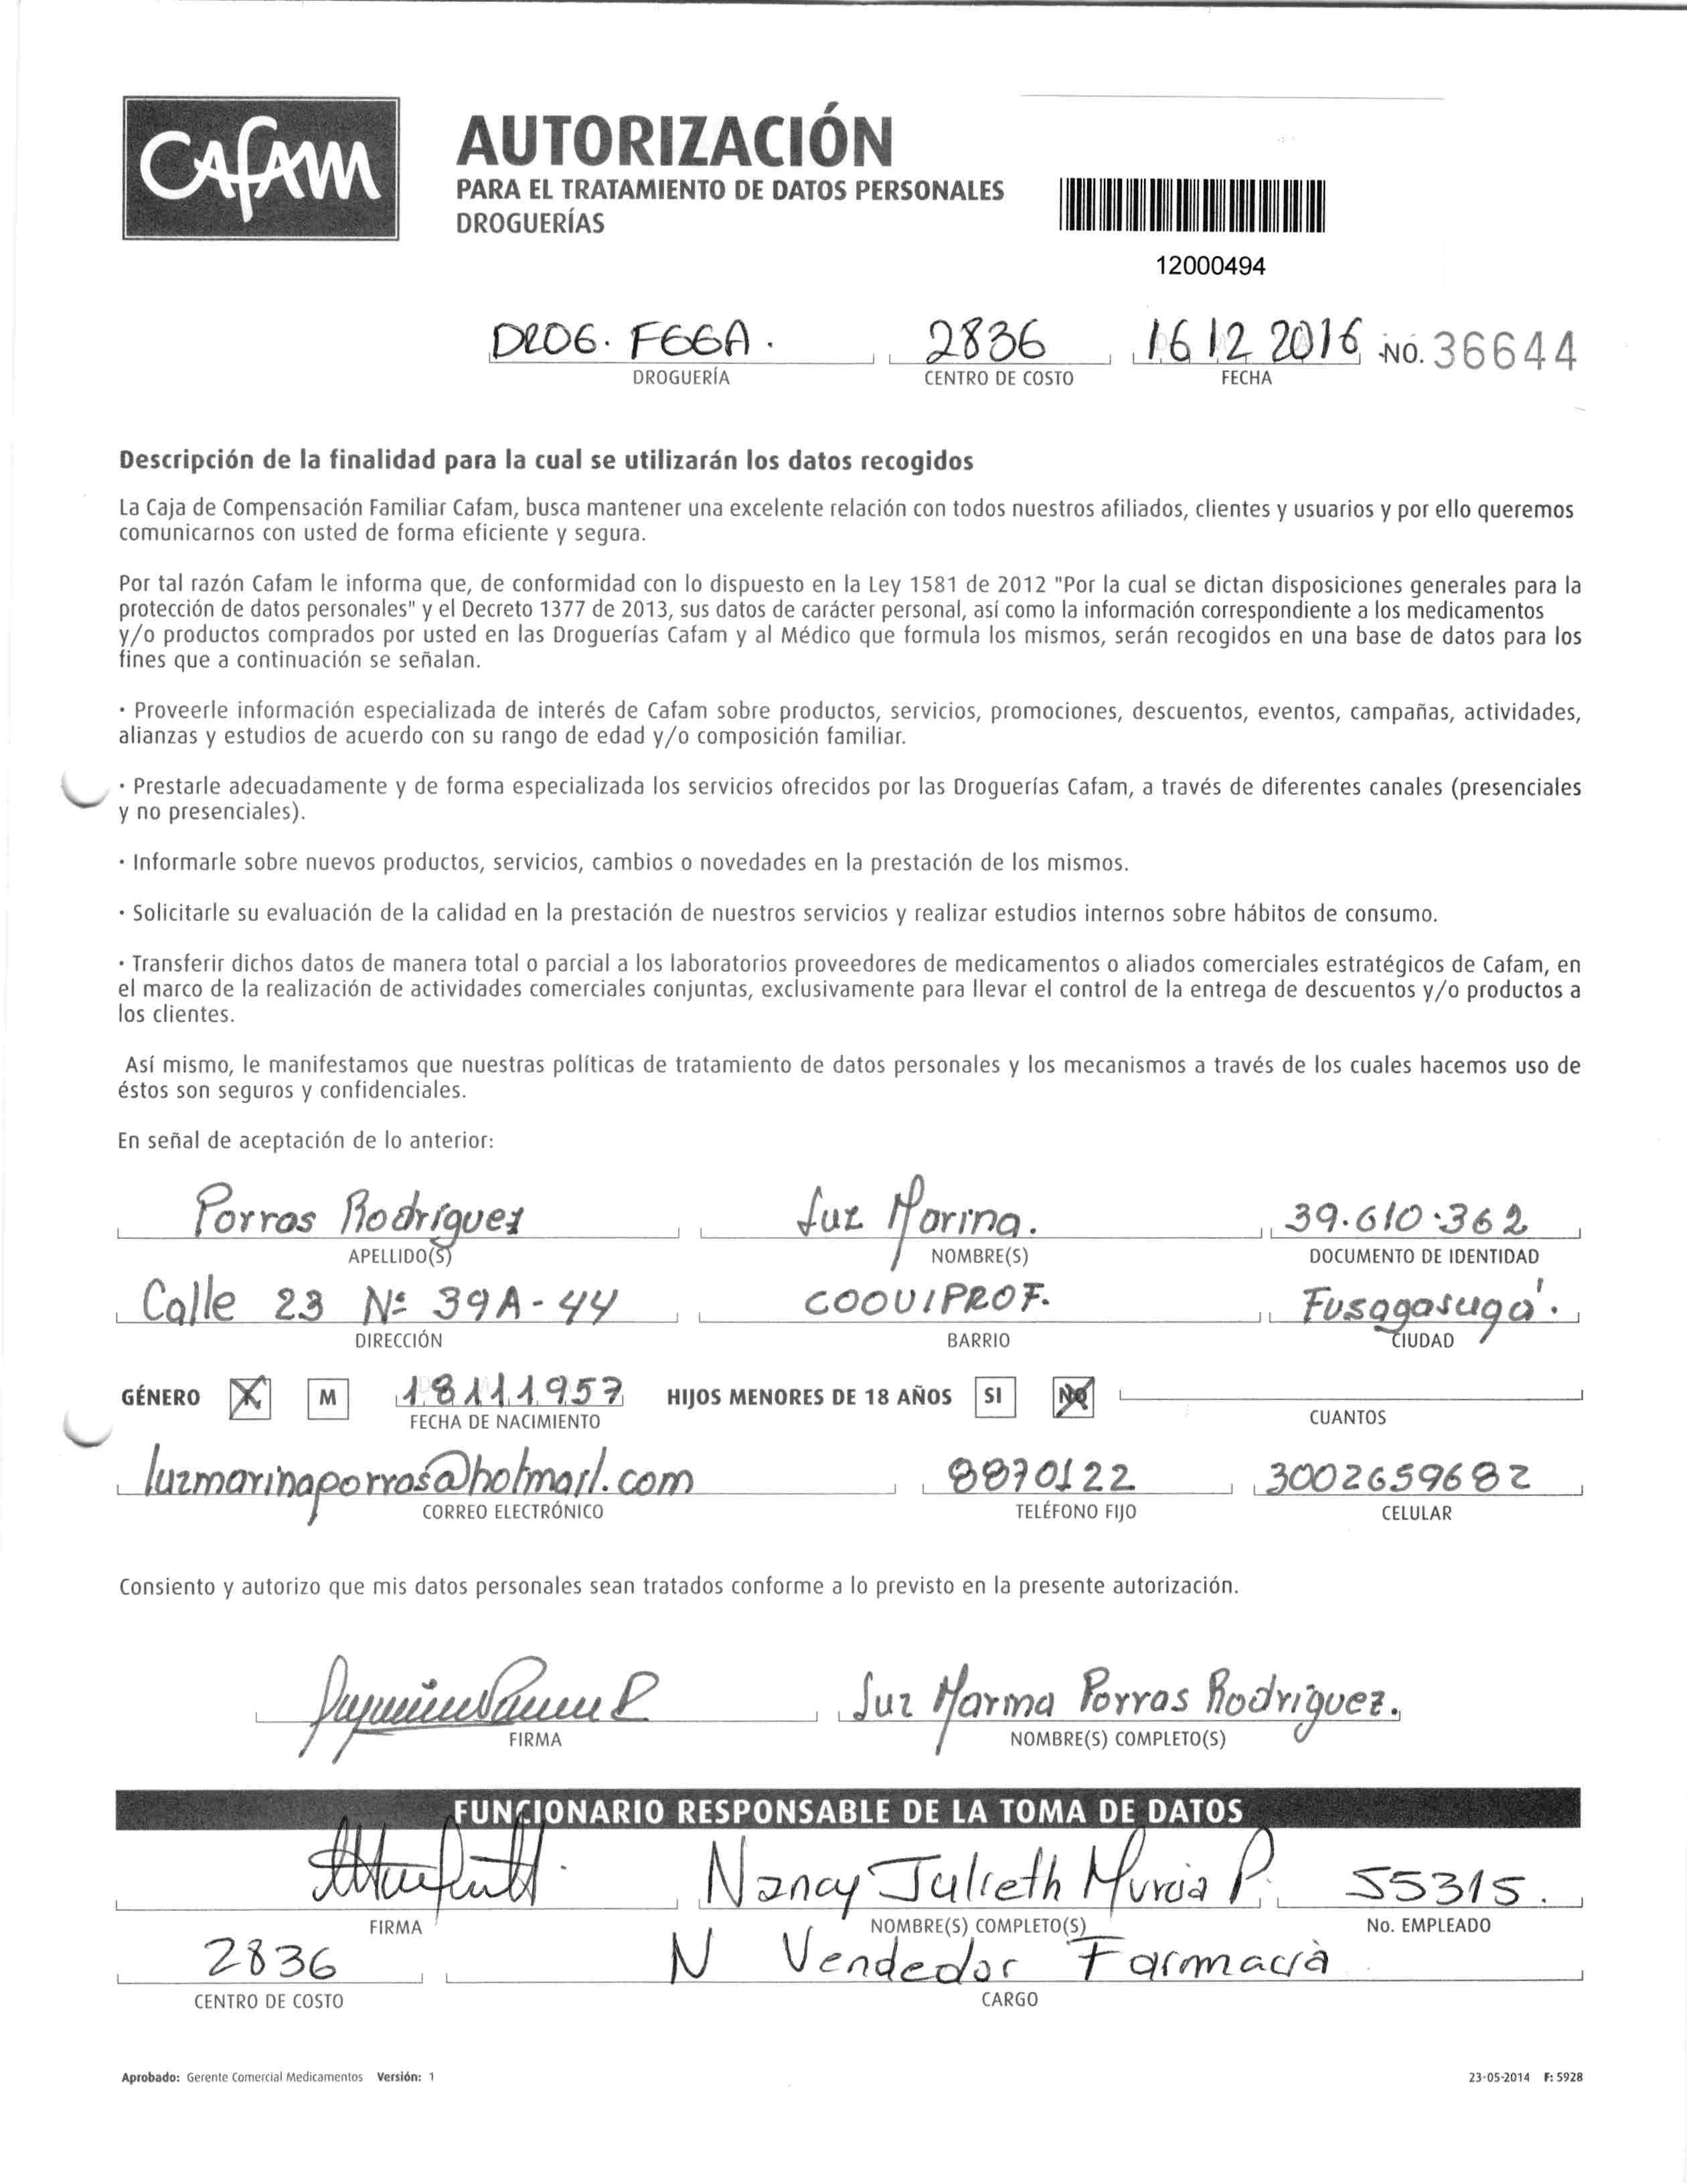 CAFAM
AUTORIZACIÓN
PARA EL TRATAMIENTO DE DATOS PERSONALES
DROGUERÍAS
12000494
DROG. FGGA. 2836 16 12 2016 NO. 36644
DROGUERÍA CENTRO DE COSTO FECHA
Descripción de la finalidad para la cual se utilizarán los datos recogidos
La Caja de Compensación Familiar Cafam, busca mantener una excelente relación con todos nuestros afiliados, clientes y usuarios y por ello queremos
comunicarnos con usted de forma eficiente y segura.
Por tal razón Cafam le informa que, de conformidad con lo dispuesto en la Ley 1581 de 2012 "Por la cual se dictan disposiciones generales para la
protección de datos personales" y el Decreto 1377 de 2013, sus datos de carácter personal, así como la información correspondiente a los medicamentos
y/o productos comprados por usted en las Droguerías Cafam y al Médico que formula los mismos, serán recogidos en una base de datos para los
fines que a continuación se señalan.
· Proveerle información especializada de interés de Cafam sobre productos, servicios, promociones, descuentos, eventos, campañas, actividades,
alianzas y estudios de acuerdo con su rango de edad y/o composición familiar.
· Prestarle adecuadamente y de forma especializada los servicios ofrecidos por las Droguerías Cafam, a través de diferentes canales (presenciales
y no presenciales).
· Informarle sobre nuevos productos, servicios, cambios o novedades en la prestación de los mismos.
· Solicitarle su evaluación de la calidad en la prestación de nuestros servicios y realizar estudios internos sobre hábitos de consumo.
· Transferir dichos datos de manera total o parcial a los laboratorios proveedores de medicamentos o aliados comerciales estratégicos de Cafam, en
el marco de la realización de actividades comerciales conjuntas, exclusivamente para llevar el control de la entrega de descuentos y/o productos a
los clientes.
Así mismo, le manifestamos que nuestras políticas de tratamiento de datos personales y los mecanismos a través de los cuales hacemos uso de
éstos son seguros y confidenciales.
En señal de aceptación de lo anterior:
Porras Rodríguez Luz Marina. 39.610.362
APELLIDO(S) NOMBRE(S) DOCUMENTO DE IDENTIDAD
Calle 23 Nº 39A-44 COOVIPROF. Fusagasugá.
DIRECCIÓN BARRIO CIUDAD
GÉNERO X M 18111957 HIJOS MENORES DE 18 AÑOS SI NO
FECHA DE NACIMIENTO CUANTOS
luzmarinaporras@hotmail.com 8870122 3002659682
CORREO ELECTRÓNICO TELÉFONO FIJO CELULAR
Consiento y autorizo que mis datos personales sean tratados conforme a lo previsto en la presente autorización.
Luz Marina Porras Rodríguez.
FIRMA NOMBRE(S) COMPLETO(S)
FUNCIONARIO RESPONSABLE DE LA TOMA DE DATOS
Nancy Julieth Murcia P. 55315.
FIRMA NOMBRE(S) COMPLETO(S) No. EMPLEADO
2836 N Vendedor Farmacia
CENTRO DE COSTO CARGO
Aprobado: Gerente Comercial Medicamentos Versión: 1 23-05-2014 F: 5928